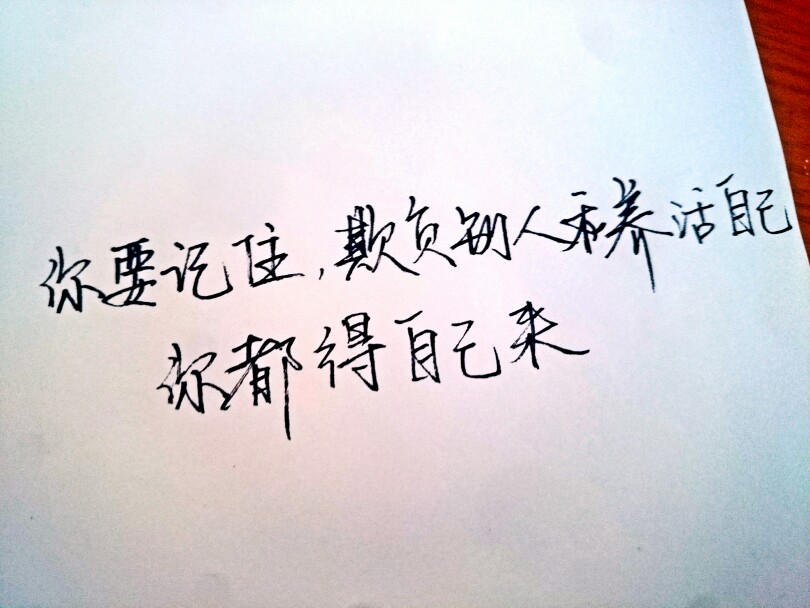 你要记住,欺负别人和养活自己
你都得自己来